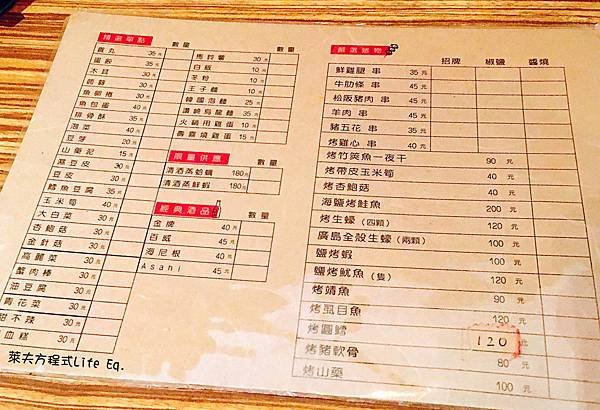 精選單點 數量
貢丸 35元
蛋餃 35元
木耳 30元
魚卵捲 30元
魚包蛋 40元
排骨酥 35元
泡菜 40元
豆芽 20元
山藥泥 15元
濕豆皮 30元
豆皮 30元
鱈魚豆腐 35元
玉米筍 40元
大白菜 30元
杏鮑菇 30元
金針菇 30元
高麗菜 30元
蟹肉棒 30元
油豆腐 30元
青花菜 30元
甜不辣 30元
血糕 30元
數量
馬鈴薯 30元
白飯 10元
冬粉 10元
王子麵 10元
韓國泡麵 25元
讚岐烏龍麵 35元
火鍋用雞蛋 10元
壽喜燒雞蛋 15元
限量供應 數量
清酒蒸蛤蠣 180元
清酒蒸鮮蝦 180元
經典酒品 數量
金牌 40元
百威 45元
海尼根 40元
Asahi 45元
嚴選烤物 招牌 椒鹽 醬燒
鮮雞腿 串 35元
牛肋條 串 45元
松阪豬肉 串 45元
羊肉 串 45元
豬五花 串 35元
烤雞心 串 40元
烤竹筴魚一夜干 90元
烤帶皮玉米筍 40元
烤杏鮑菇 40元
海鹽烤鮭魚 200元
烤生蠔(四顆) 120元
廣島全殼生蠔(兩顆) 100元
鹽烤蝦 100元
鹽烤魷魚(隻) 120元
烤鯖魚 90元
烤虱目魚 120元
烤圓鱈 120元
烤豬軟骨 80元
烤山藥 100元
萊夫方程式Life Eq.